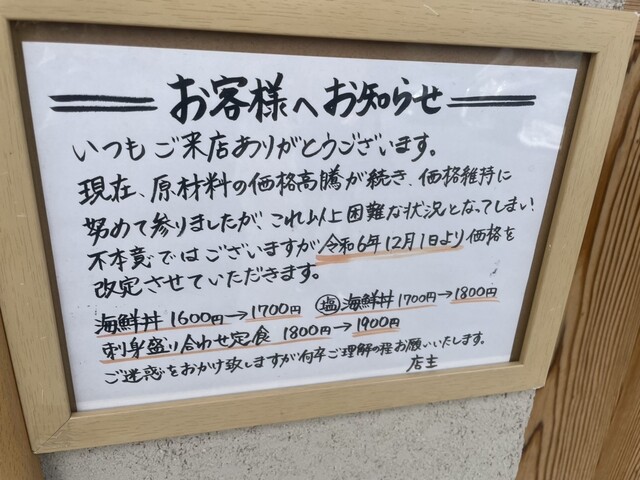 お客様へお知らせ
いつもご来店ありがとうございます。
現在、原材料の価格高騰が続き、価格維持に
努めて参りましたが、これ以上困難な状況となってしまい、
不本意ではございますが令和6年12月1日より価格を
改定させていただきます。
海鮮丼 1600円→1700円 塩海鮮丼 1700円→1800円
刺身盛り合わせ定食 1800円→1900円
ご迷惑をおかけ致しますが何卒ご理解の程お願いいたします。
店主